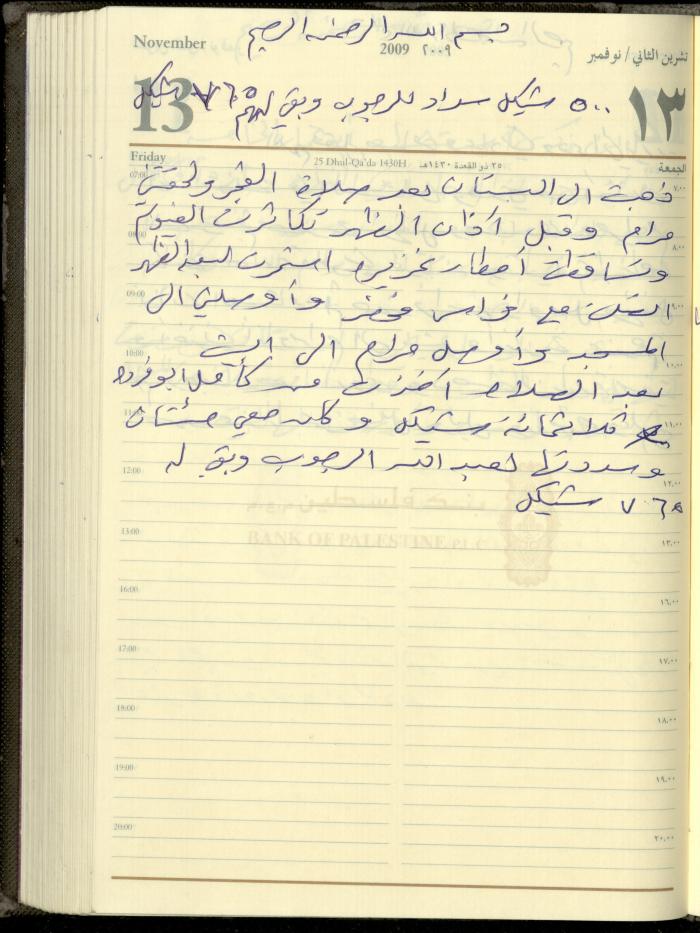 بسم الله الرحمن الرحيم
November
2009 ٢٠٠٩
تشرين الثاني / نوفمبر
13
٥٠٠ شيكل سداد للرجوب وبقي لهم ٧٦٥ شيكل
١٣
Friday
25 Dhul-Qa'da 1430H
٢٥ ذو القعدة ١٤٣٠هـ
الجمعة
07:00 ٧,٠٠
ذهبت الى البستان بعد صلاة الفجر ولحقتني
مرام وقبل أذان الظهر تكاثرت الغيوم
08:00 ٨,٠٠
وتساقطت أمطار غزيره استمرت لبعد الظهر
09:00 ٩,٠٠
مع فراس وأوصلني الى
المسجد وأوصل مرام الى البيت
10:00 ١٠,٠٠
بعد الصلاه أخذت من كامل ابو فرده
11:00 ١١,٠٠
ثلاثمائة شيكل وكان معي مئتان
وسددتها لعبد الله الرجوب وبقي له
12:00 ١٢,٠٠
٧٦٥ شيكل
بنك فلسطين
13:00 ١٣,٠٠
BANK OF PALESTINE PLC
16:00 ١٦,٠٠
17:00 ١٧,٠٠
18:00 ١٨,٠٠
19:00 ١٩,٠٠
20:00 ٢٠,٠٠